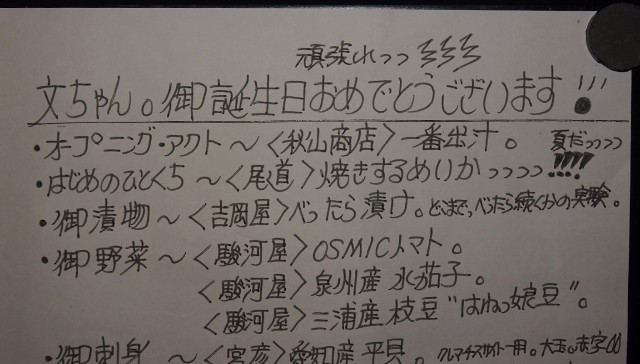 頑張れっっ
文ちゃん。御誕生日おめでとうございます!!!
・オープニング・アクト～〈秋山商店〉一番出汁。 夏だっっっっ
・はじめのひとくち～〈尾道〉焼きするめいかっっっっ!!!!
・御漬物～〈吉岡屋〉べったら漬け。どこまで、べったら続くかの実験。
・御野菜～〈駿河屋〉OSMICトマト。
〈駿河屋〉泉州産 水茄子。
〈駿河屋〉三浦産 枝豆“はねっ娘豆”。
・御刺身～〈宮彦〉愛知産 平貝。